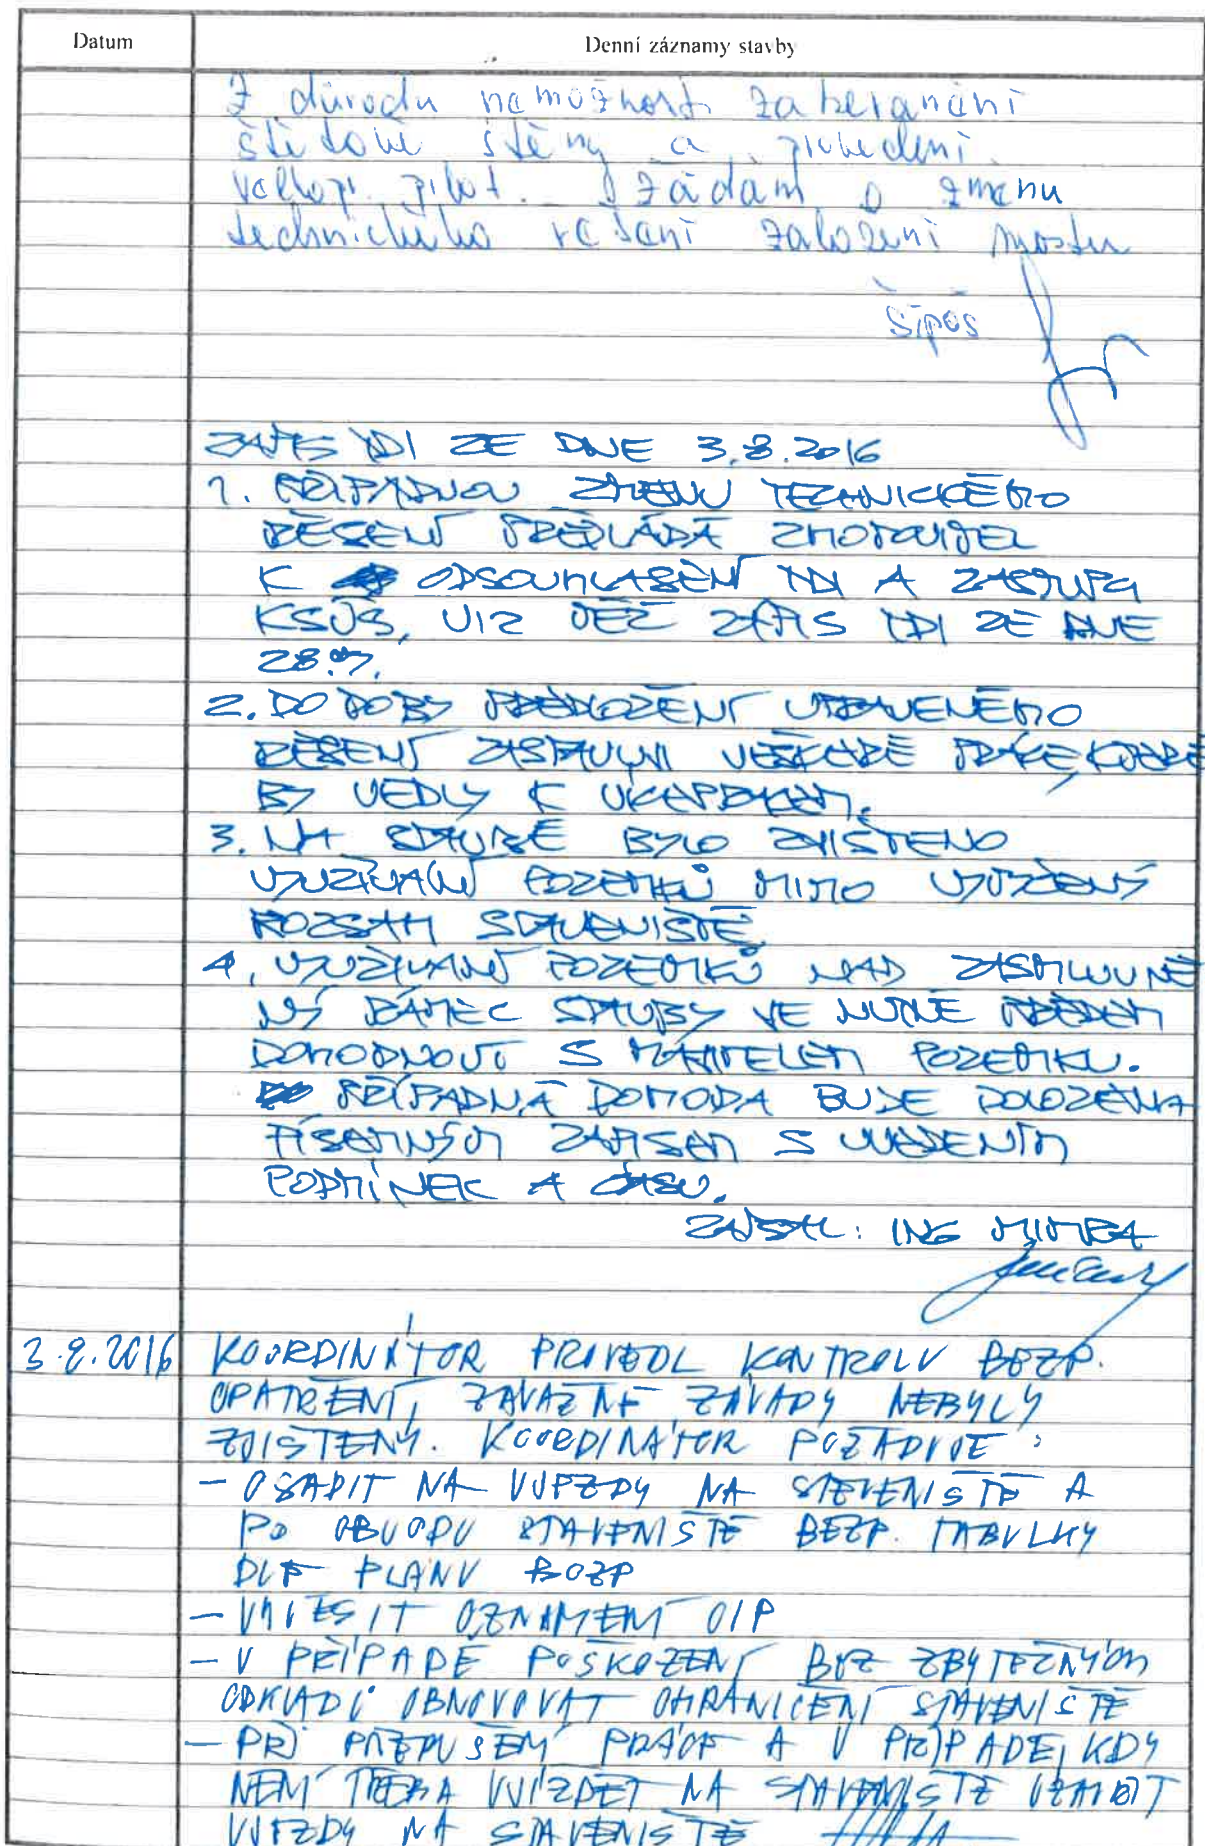 Datum
Denní záznamy stavby
Z důvodu nemožnosti zaberanění
štětové stěny a provedení
velkopr. pilot. žádám o změnu
technického řešení založení mostu
Šipoš
ZÁPIS TDI ZE DNE 3.8.2016
1. PŘÍPADNOU ZMĚNU TECHNICKÉHO
ŘEŠENÍ PŘEDKLÁDÁ ZHOTOVITEL
K ODSOUHLASENÍ TDI A ZÁSTUPCI
KSÚS, VIZ TÉŽ ZÁPIS TDI ZE DNE
28.7.
2. DO DOBY PŘEDLOŽENÍ UPRAVENÉHO
ŘEŠENÍ VEŠKERÉ PRÁCE, KTERÉ
BY VEDLY K VÍCEPRACEM.
3. NA STAVBĚ BYLO ZJIŠTĚNO
VYUŽÍVÁNÍ POZEMKŮ MIMO VYTYČENÝ
ROZSAH STAVENIŠTĚ
4. VYUŽÍVÁNÍ POZEMKŮ NAD ZASMLUVNĚ
NÝ RÁMEC STAVBY JE NUTNÉ PŘEDEM
DOHODNOUT S MAJITELEM POZEMKU.
PŘÍPADNÁ DOHODA BUDE DOLOŽENA
PÍSEMNÝM ZÁPISEM S UVEDENÍM
PODMÍNEK A ČASU.
ZAPSAL: ING
3.8.2016 KOORDINÁTOR PROVEDL KONTROLU BEZP.
OPATŘENÍ, ZÁVAŽNÉ ZÁVADY NEBYLY
ZJIŠTĚNY. KOORDINÁTOR POŽADUJE:
- OSADIT NA VJEZDY NA STAVENIŠTĚ A
PO OBVODU STAVENIŠTĚ BEZP. TABULKY
DLE PLÁNU BOZP
- VYVĚSIT OZNÁMENÍ OIP
- V PŘÍPADĚ POŠKOZENÍ BEZ ZBYTEČNÝCH
ODKLADŮ OBNOVOVAT OHRANIČENÍ STAVENIŠTĚ
- PŘI PŘERUŠENÍ PRÁCE A V PŘÍPADE, KDY
NENÍ TŘEBA VJÍZDĚT NA STAVENIŠTĚ UZAVŘÍT
VJEZDY NA STAVENIŠTĚ